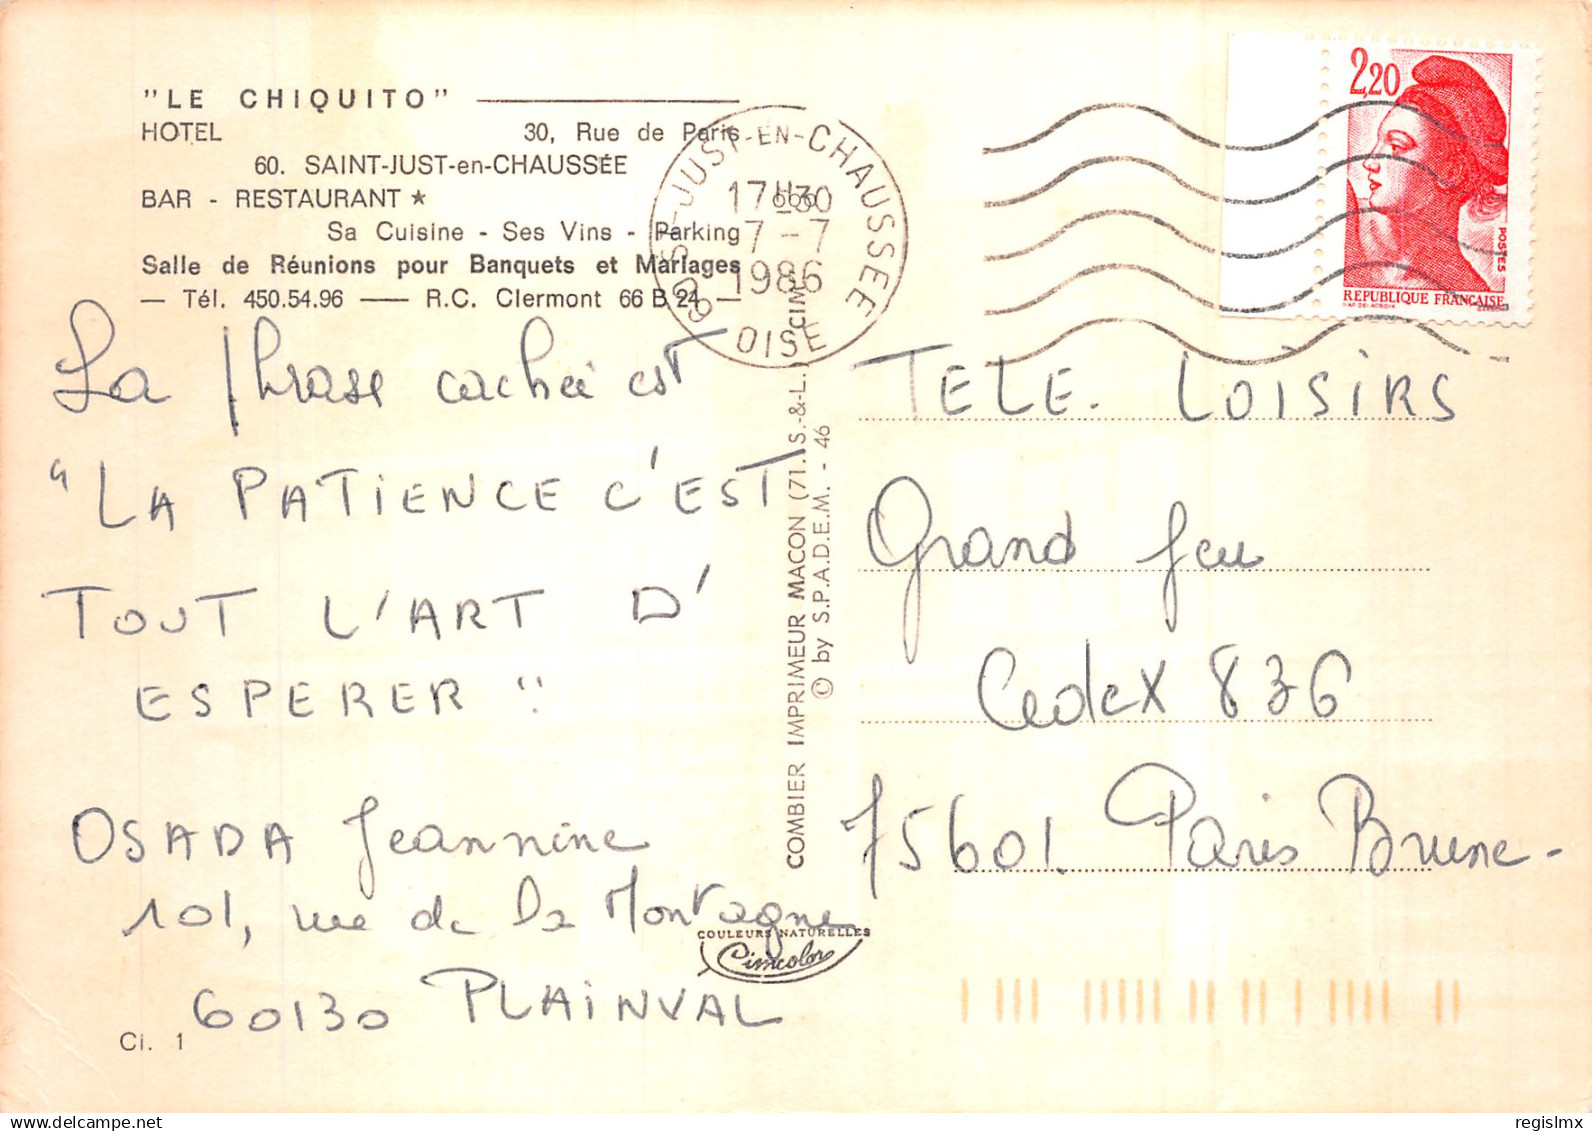 "LE CHIQUITO"
HOTEL 30, Rue de Paris
60. SAINT-JUST-en-CHAUSSÉE
BAR - RESTAURANT ★
Sa Cuisine - Ses Vins - Parking
Salle de Réunions pour Banquets et Mariages
— Tél. 450.54.96 — R.C. Clermont 66 B 24 —
60 ST-JUST-EN-CHAUSSEE
17H30
7-7
1986
OISE
2,20
POSTES
REPUBLIQUE FRANÇAISE
La phrase cachée est
"LA PATIENCE C'EST
TOUT L'ART D'
ESPERER"
OSADA Jeannine
101, rue de la Montagne
60130 PLAINVAL
Ci. 1
COMBIER IMPRIMEUR MACON (71. S.-&-L.) CIM
© by S.P.A.D.E.M. - 46
COULEURS NATURELLES
Cimcolor
TELE. LOISIRS
Grand Jeu
Cedex 836
75601. Paris Brune-
regislmx